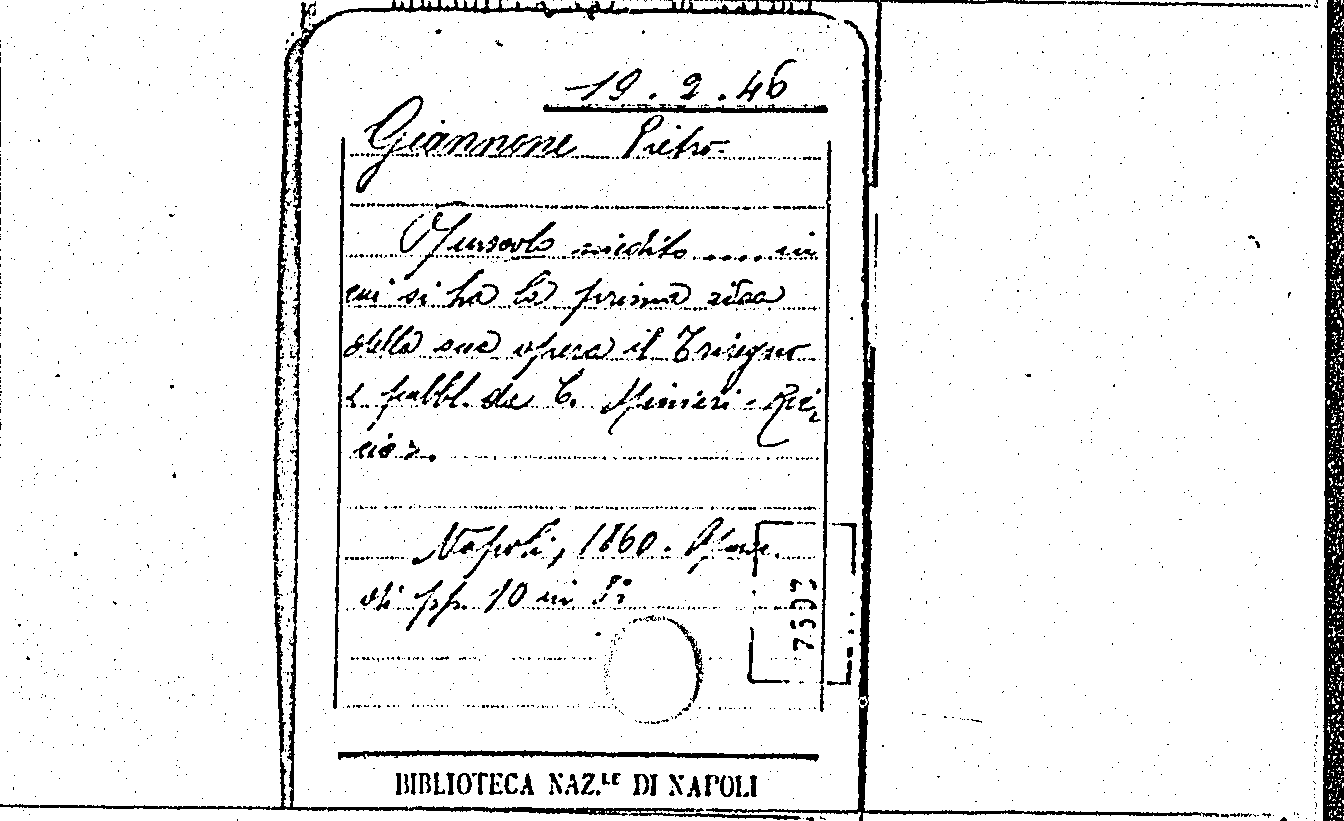 19.2.46
Giannone Pietro
Opuscolo inedito .... in
cui si ha la prima idea
della sua opera il Triregno
e pubbl. da C. Minieri-Ric
cio.
Napoli, 1860. Opus.
di pp. 10 in 8º
BIBLIOTECA NAZ.LE DI NAPOLI